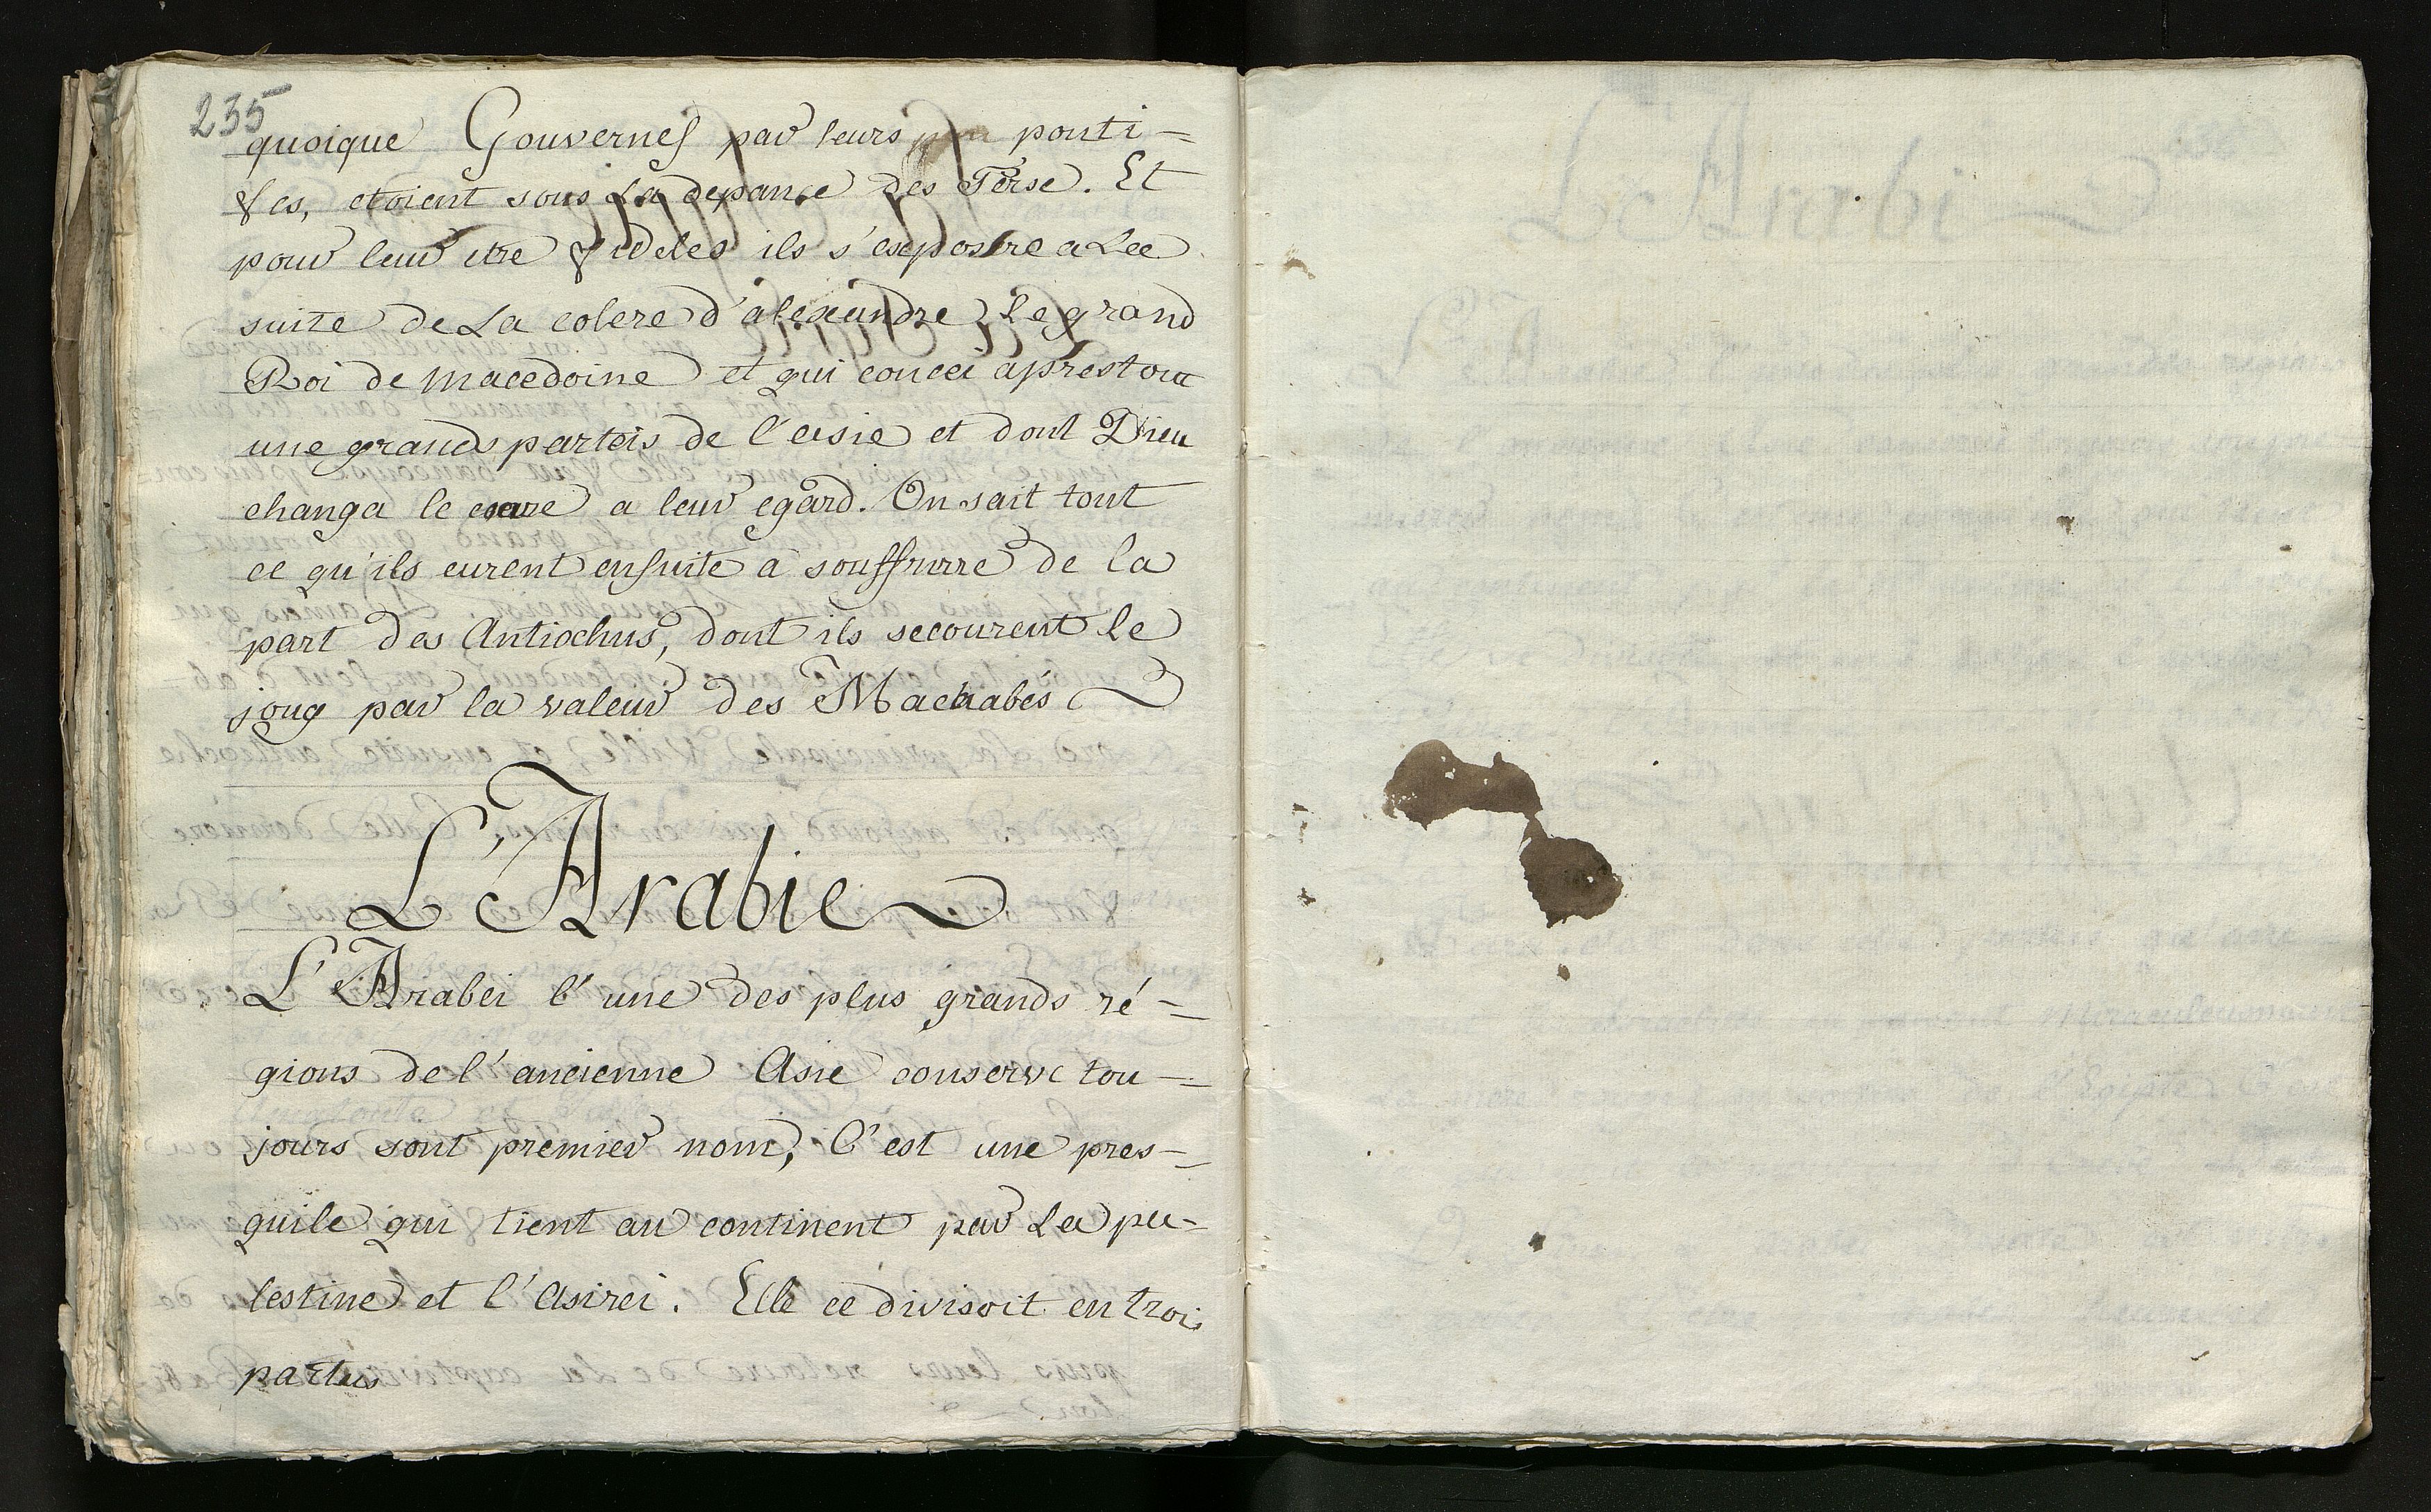 235
quoique Gouvernes par leurs ponti=
fes, etoient sous La depance des Perse. Et
pour leur etre fideles ils s'exposere a La
suite de La colere d'alexandre Le grand
Roi de Macedoine et qui concei aprestout
une grands parteis de l'asie et dont Dieu
changa le a leur egard. On sait tout
ce qu'ils eurent ensuite a souffrirre de la
part des Antiochus, dont ils secourent le
joug par la valeur des Machabés
L'Arabie
L'Arabei l'une des plus grands ré=
gions de l'ancienne Asie conserve tou=
jours sont premier nom, C'est une pres=
quile qui tient au continent par La pa=
lestine et l'Asirei. Elle ce divisoit en troi
parties